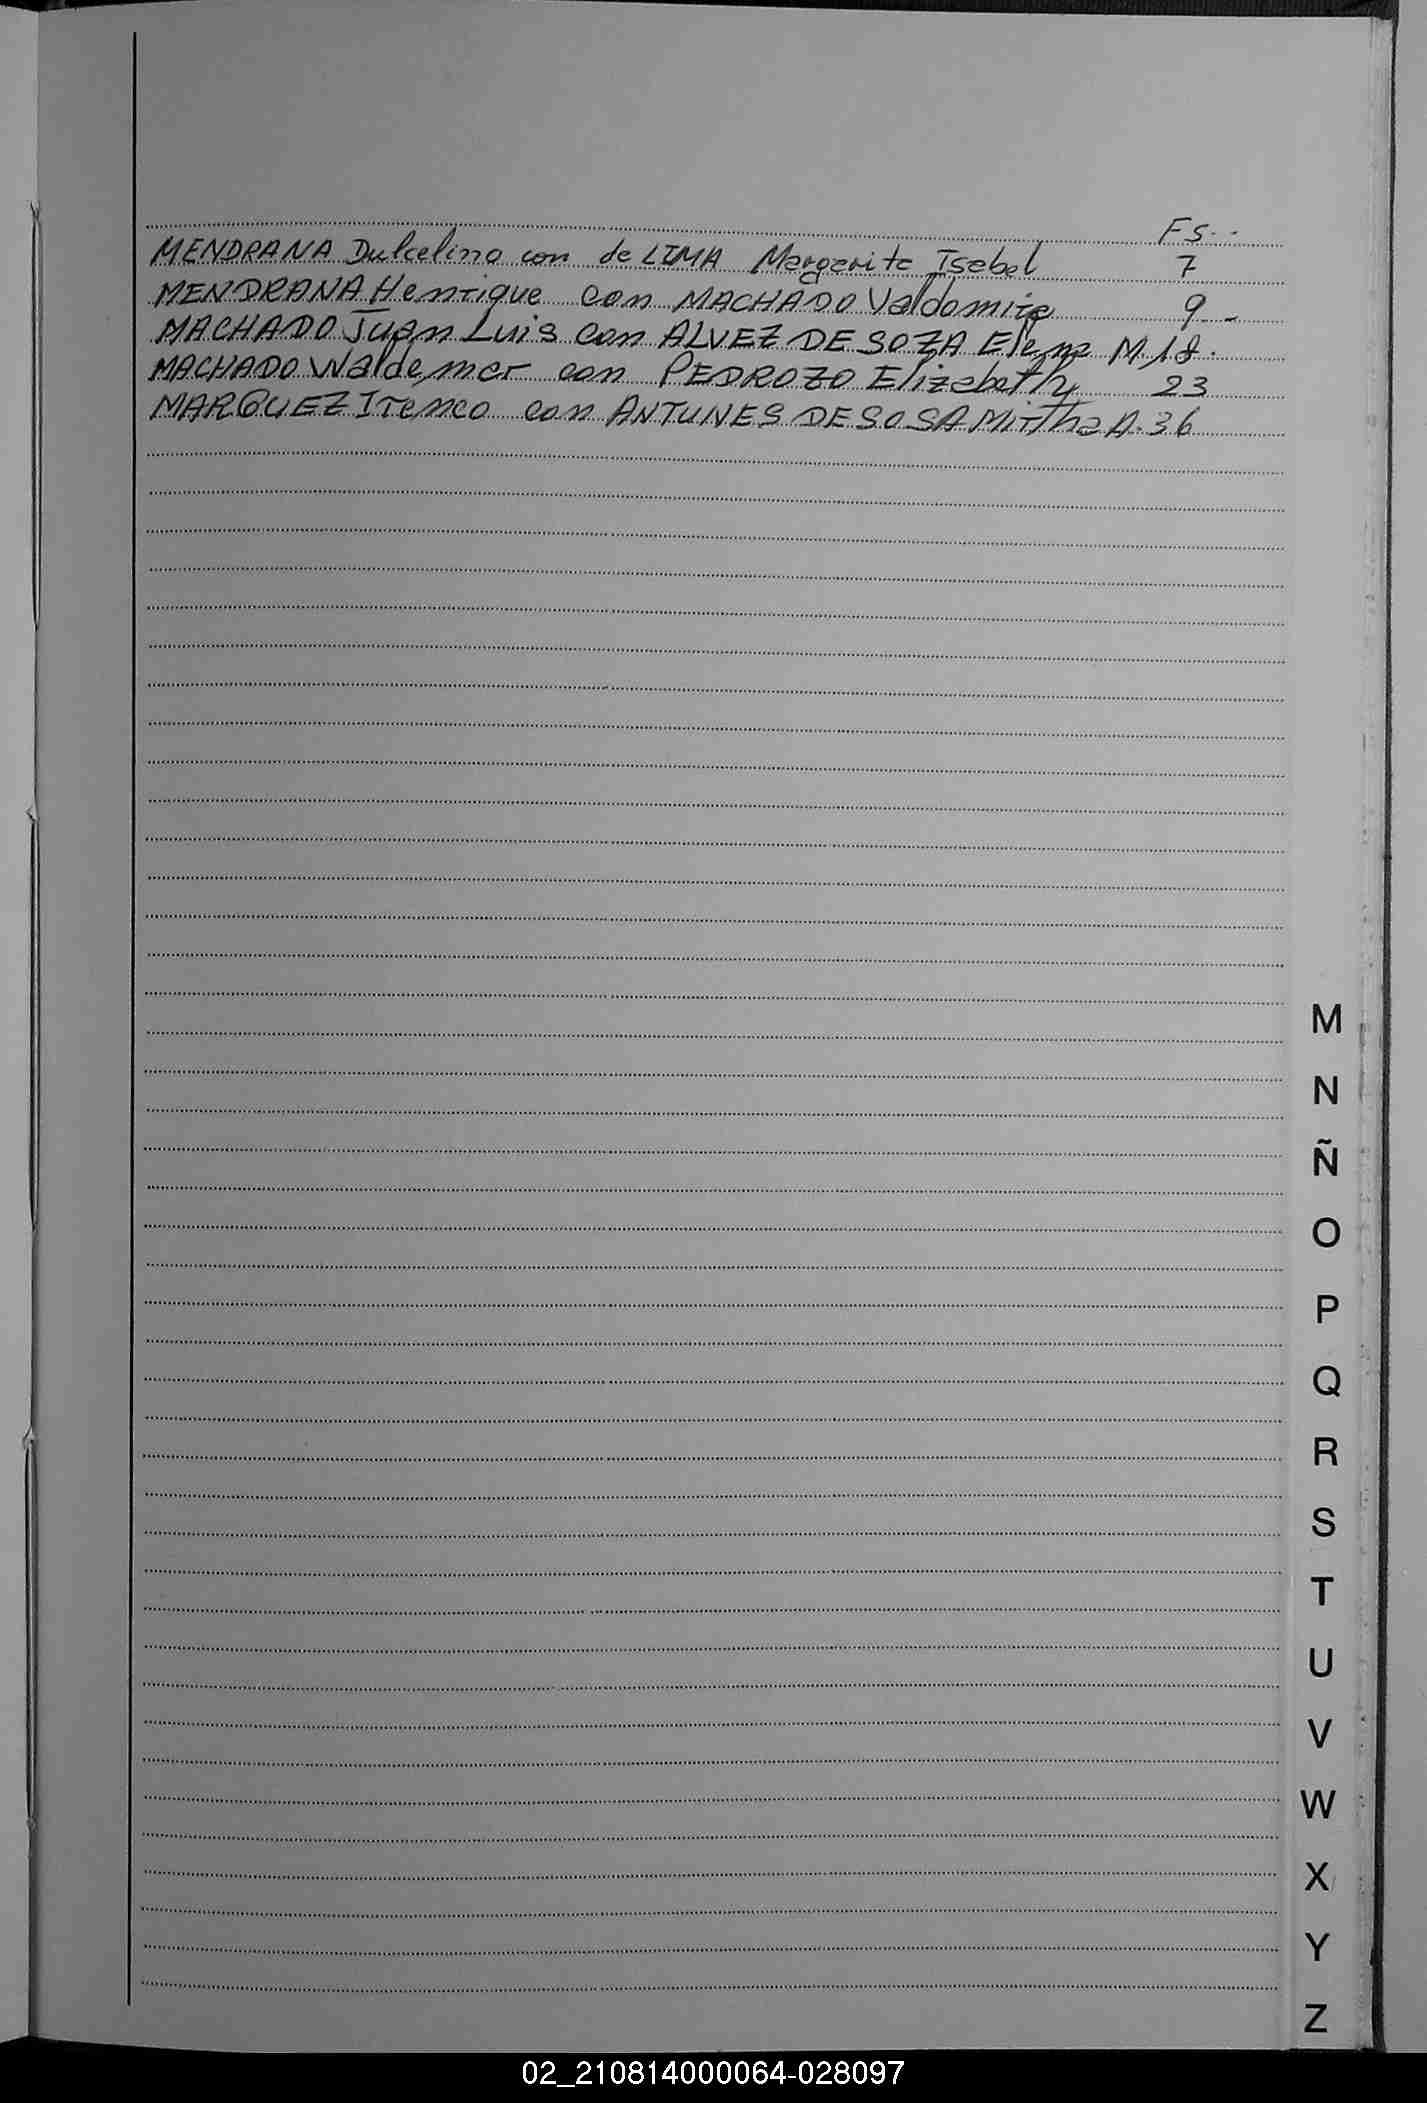 Fs..
MENDRANA Dulcelino con de LIMA Margarita Isabel 7
MENDRANA Henrique con MACHADO Valdomira 9.-
MACHADO Juan Luis con ALVEZ DE SOZA Elena M. 18.
MACHADO Waldemar con PEDROZO Elizabeth 23
MARQUEZ con ANTUNES DE SOSA Mirtha A. 36
M
N
Ñ
O
P
Q
R
S
T
U
V
W
X
Y
Z
02_210814000064-028097